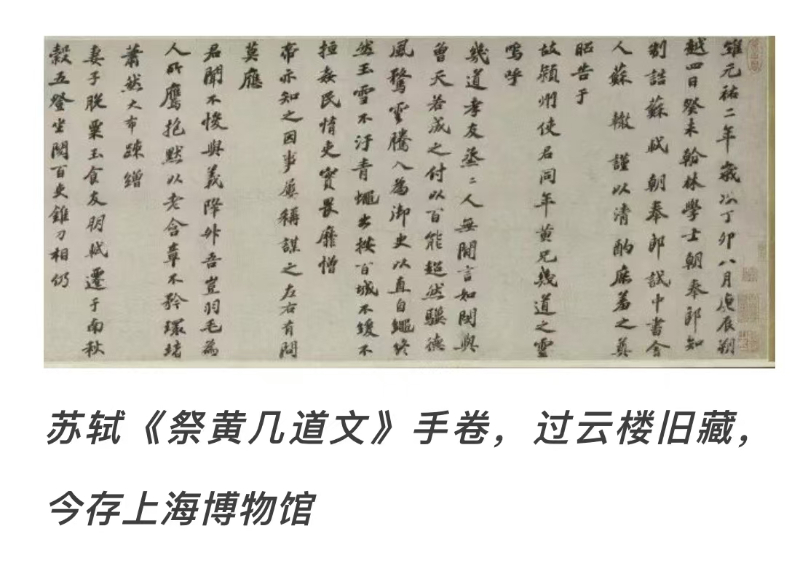 維元祐二年歲次丁卯八月庚辰朔
越四日癸未翰林學士朝奉郎知
制誥蘇軾朝奉郎試中書舍
人蘇轍謹以清酌庶羞之奠
昭告于
故潁州使君同年黃兄幾道之靈
嗚呼
幾道孝友烝二人無間言如閔與
曾天若成之付以百能超然驥德
風騖雲騰入為御史以直自繩
然玉雪不汙青蠅出按百城不緩不
姦民惰吏實畏靡憎
帝亦知之因事屢稱謀之左右有問
莫應
君聞不悛與義降升吾豈羽毛為
人所鷹抱默以老含章不矜環堵
蕭然大布疎繒
妻子脫粟玉食友朋軾遷于南秋
穀五登坐閱百吏錐刀相仍
苏轼《祭黄几道文》手卷，过云楼旧藏，
今存上海博物馆